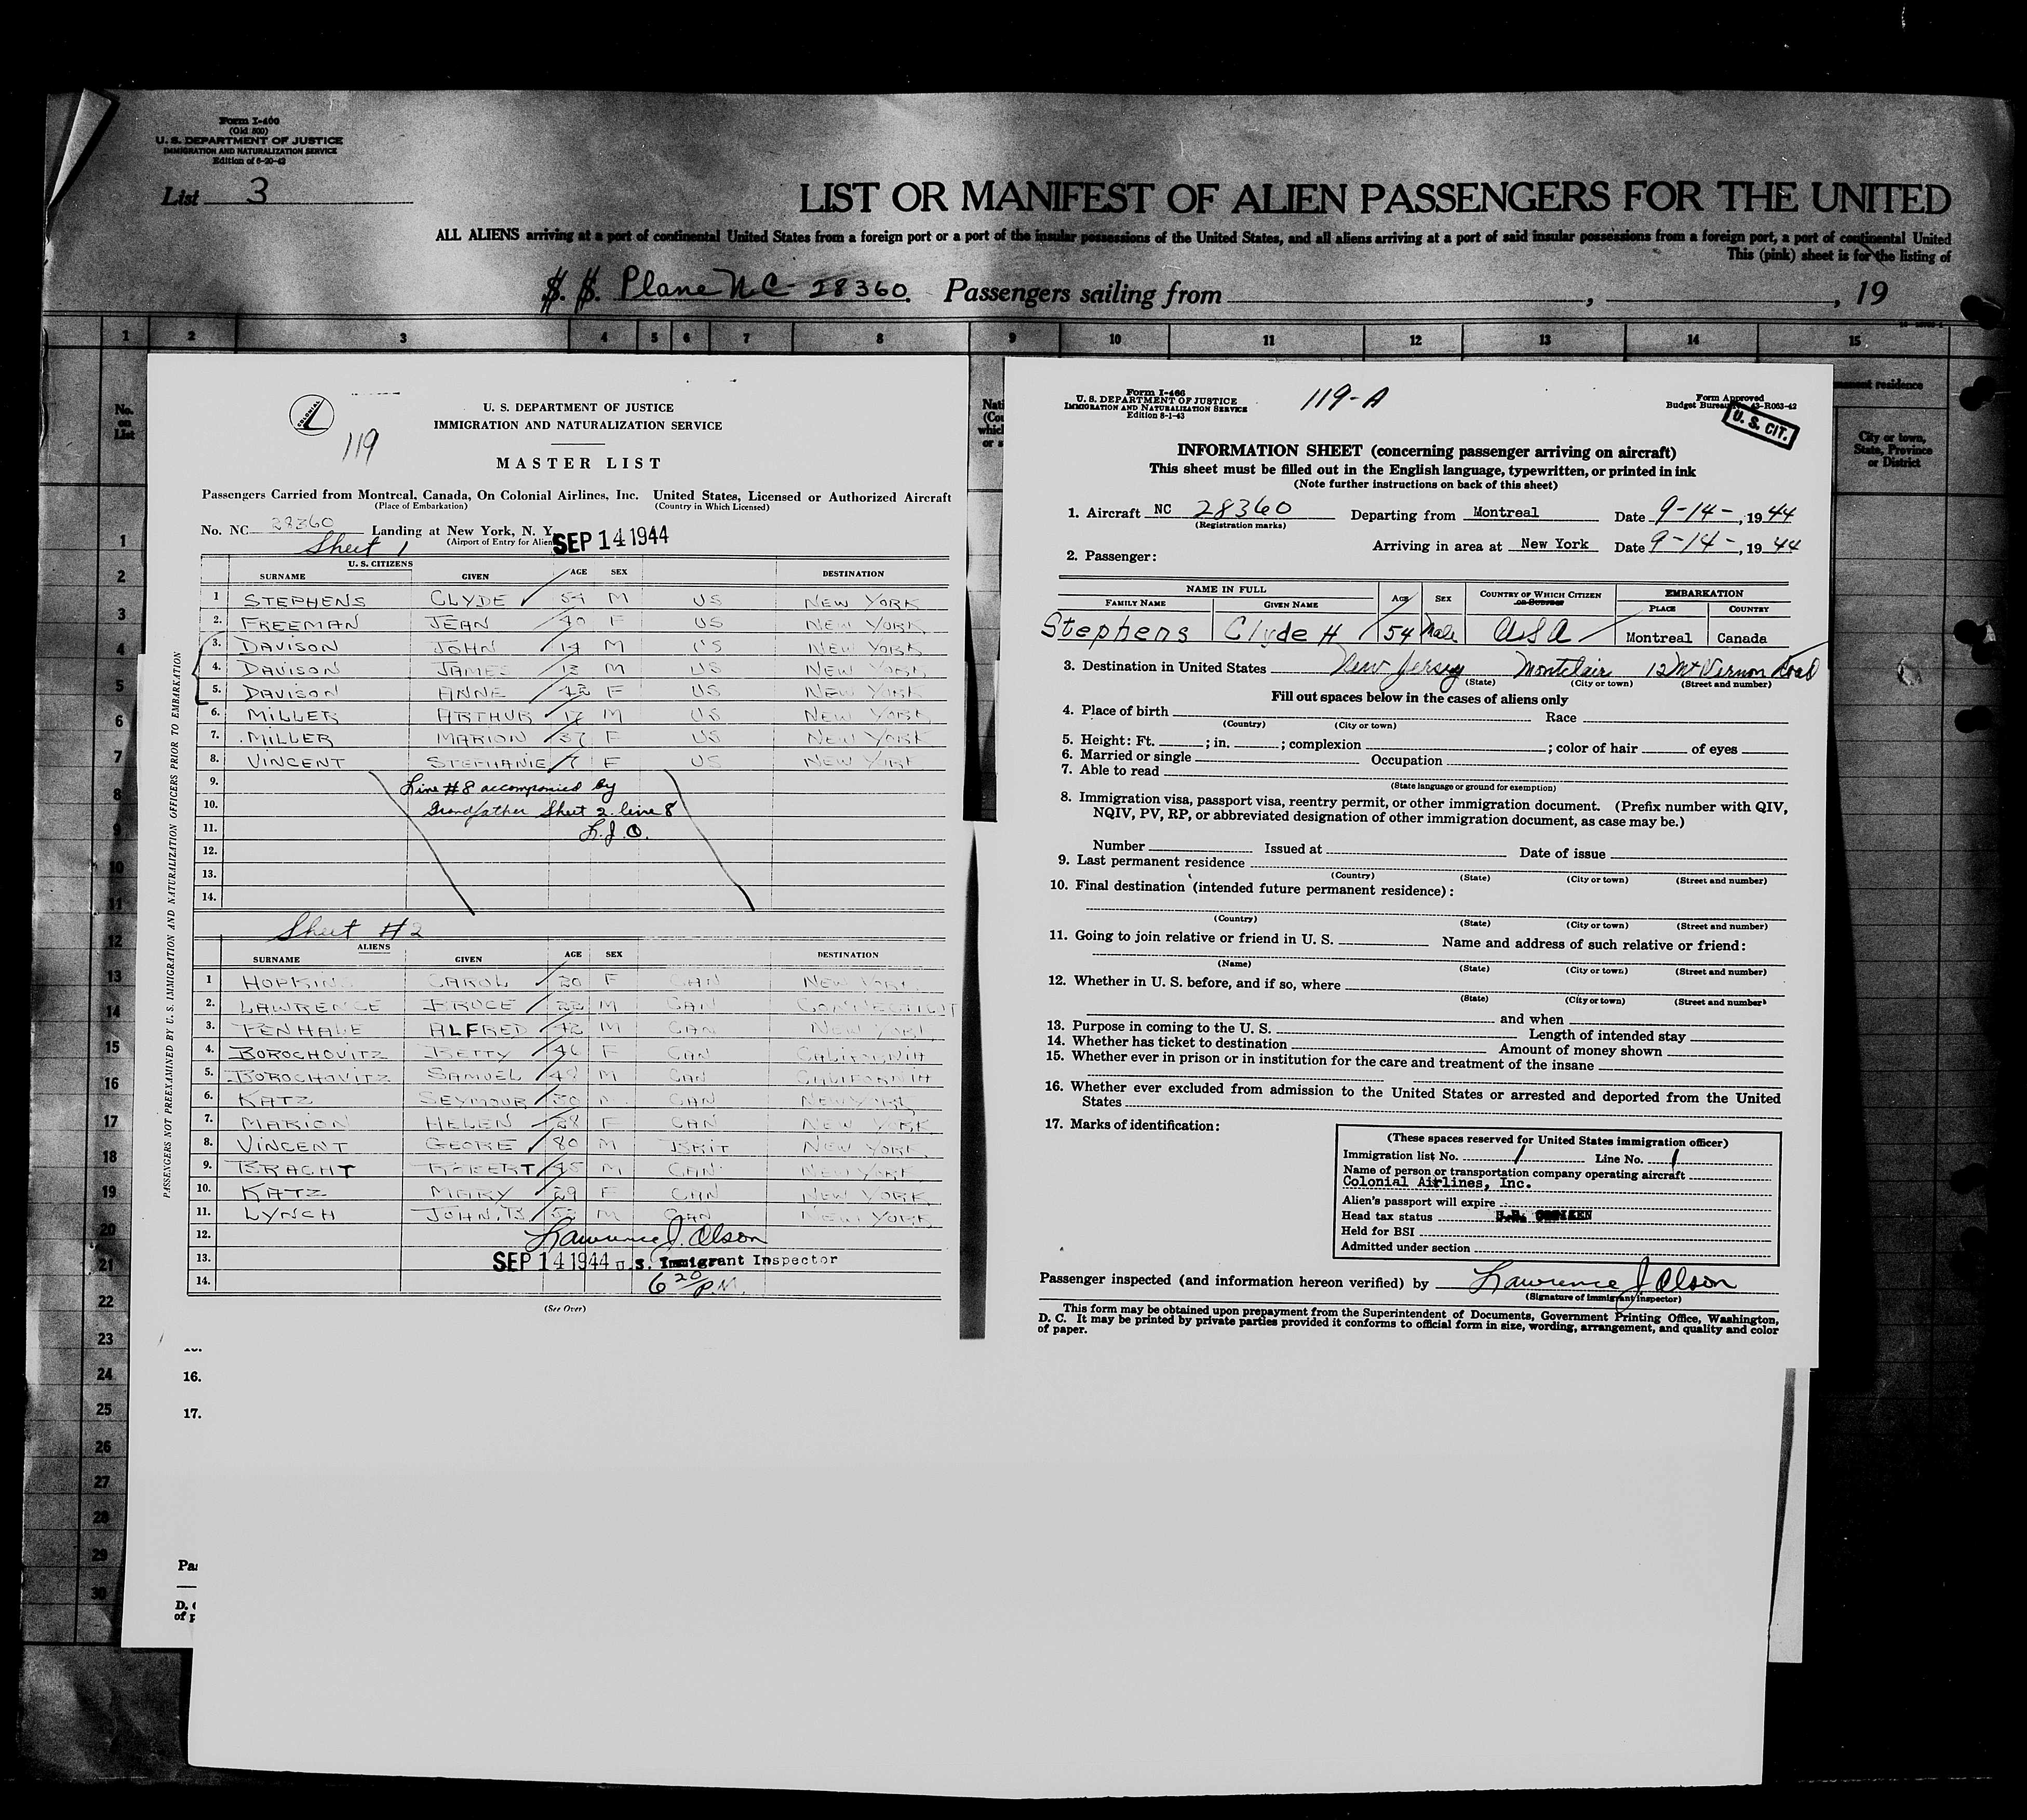 Form I-466
(Old 500)
U. S. DEPARTMENT OF JUSTICE
IMMIGRATION AND NATURALIZATION SERVICE
Edition of 6-20-43
List 3
LIST OR MANIFEST OF ALIEN PASSENGERS FOR THE UNITED
ALL ALIENS arriving at a port of continental United States from a foreign port or a port of the insular possessions of the United States, and all aliens arriving at a port of said insular possessions from a foreign port, a port of continental United
This (pink) sheet is for the listing of
S. S. Plane NC-28360. Passengers sailing from , , 19
1 2 3 4 5 6 7 8 9 10 11 12 13 14 15
No. on List
City or town, State, Province or District
1
2
3
4
5
6
7
8
9
10
11
12
13
14
15
16
17
18
19
20
21
22
23
24
25
26
27
28
29
30
COLONIAL
119
U. S. DEPARTMENT OF JUSTICE
IMMIGRATION AND NATURALIZATION SERVICE
MASTER LIST
Passengers Carried from Montreal, Canada, On Colonial Airlines, Inc. United States, Licensed or Authorized Aircraft
(Place of Embarkation) (Country in Which Licensed)
No. NC 28360 Landing at New York, N. Y. SEP 14 1944
Sheet 1 (Airport of Entry for Alien
U. S. CITIZENS
SURNAME GIVEN AGE SEX DESTINATION
1 STEPHENS CLYDE 54 M US NEW YORK
2. FREEMAN JEAN 40 F US NEW YORK
3. DAVISON JOHN 14 M US NEW YORK
4. DAVISON JAMES 13 M US NEW YORK
5. DAVISON ANNE 42 F US NEW YORK
6. MILLER ARTHUR M US NEW YORK
7. MILLER MARION 37 F US NEW YORK
8. VINCENT STEPHANIE 7 F US NEW YORK
9. Line #8 accompanied by
10. Grandfather Sheet 2 line 8
11. L. J. O.
12.
13.
14.
Sheet #2
ALIENS
SURNAME GIVEN AGE SEX DESTINATION
1 HOPKINS CAROL 20 F CAN NEW YORK
2. LAWRENCE BRUCE 22 M CAN CONNECTICUT
3. PENHALE ALFRED 42 M CAN NEW YORK
4. BOROCHOVITZ BETTY 46 F CAN CALIFORNIA
5. BOROCHOVITZ SAMUEL 48 M CAN CALIFORNIA
6. KATZ SEYMOUR 30 M CAN NEW YORK
7. MARION HELEN 28 F CAN NEW YORK
8. VINCENT GEORE 80 M BRIT NEW YORK
9. BRACHT ROBERT 45 M CAN NEW YORK
10. KATZ MARY 29 F CAN NEW YORK
11. LYNCH JOHN, B M CAN NEW YORK
12. Lawrence J. Olson
13. SEP 14 1944 U. S. Immigrant Inspector
14. 6 20 P.M.
(See Over)
PASSENGERS NOT PREEXAMINED BY U. S. IMMIGRATION AND NATURALIZATION OFFICERS PRIOR TO EMBARKATION
16.
17.
Pa
D. C
of p
Form I-466
U. S. DEPARTMENT OF JUSTICE
IMMIGRATION AND NATURALIZATION SERVICE
Edition 8-1-43
119-A
Form Approved
Budget Bureau No. 43-R063-42
U. S. CIT.
INFORMATION SHEET (concerning passenger arriving on aircraft)
This sheet must be filled out in the English language, typewritten, or printed in ink
(Note further instructions on back of this sheet)
1. Aircraft NC 28360 Departing from Montreal Date 9-14-, 1944
(Registration marks)
Arriving in area at New York Date 9-14-, 1944
2. Passenger:
NAME IN FULL AGE SEX COUNTRY OF WHICH CITIZEN OR SUBJECT EMBARKATION
FAMILY NAME GIVEN NAME PLACE COUNTRY
Stephens Clyde H 54 Male USA Montreal Canada
3. Destination in United States New Jersey Montclair 12 Mt Vernon Road
(State) (City or town) (Street and number)
Fill out spaces below in the cases of aliens only
4. Place of birth Race
(Country) (City or town)
5. Height: Ft. ; in. ; complexion ; color of hair of eyes
6. Married or single Occupation
7. Able to read
(State language or ground for exemption)
8. Immigration visa, passport visa, reentry permit, or other immigration document. (Prefix number with QIV,
NQIV, PV, RP, or abbreviated designation of other immigration document, as case may be.)
Number Issued at Date of issue
9. Last permanent residence
(Country) (State) (City or town) (Street and number)
10. Final destination (intended future permanent residence):
(Country) (State) (City or town) (Street and number)
11. Going to join relative or friend in U. S. Name and address of such relative or friend:
(Name) (State) (City or town) (Street and number)
12. Whether in U. S. before, and if so, where
(State) (City or town) (Street and number)
and when
13. Purpose in coming to the U. S. Length of intended stay
14. Whether has ticket to destination Amount of money shown
15. Whether ever in prison or in institution for the care and treatment of the insane
16. Whether ever excluded from admission to the United States or arrested and deported from the United
States
17. Marks of identification:
(These spaces reserved for United States immigration officer)
Immigration list No. 1 Line No. 1
Name of person or transportation company operating aircraft
Colonial Airlines, Inc.
Alien's passport will expire
Head tax status
Held for BSI
Admitted under section
Passenger inspected (and information hereon verified) by Lawrence J. Olson
(Signature of Immigrant Inspector)
This form may be obtained upon prepayment from the Superintendent of Documents, Government Printing Office, Washington,
D. C. It may be printed by private parties provided it conforms to official form in size, wording, arrangement, and quality and color
of paper.